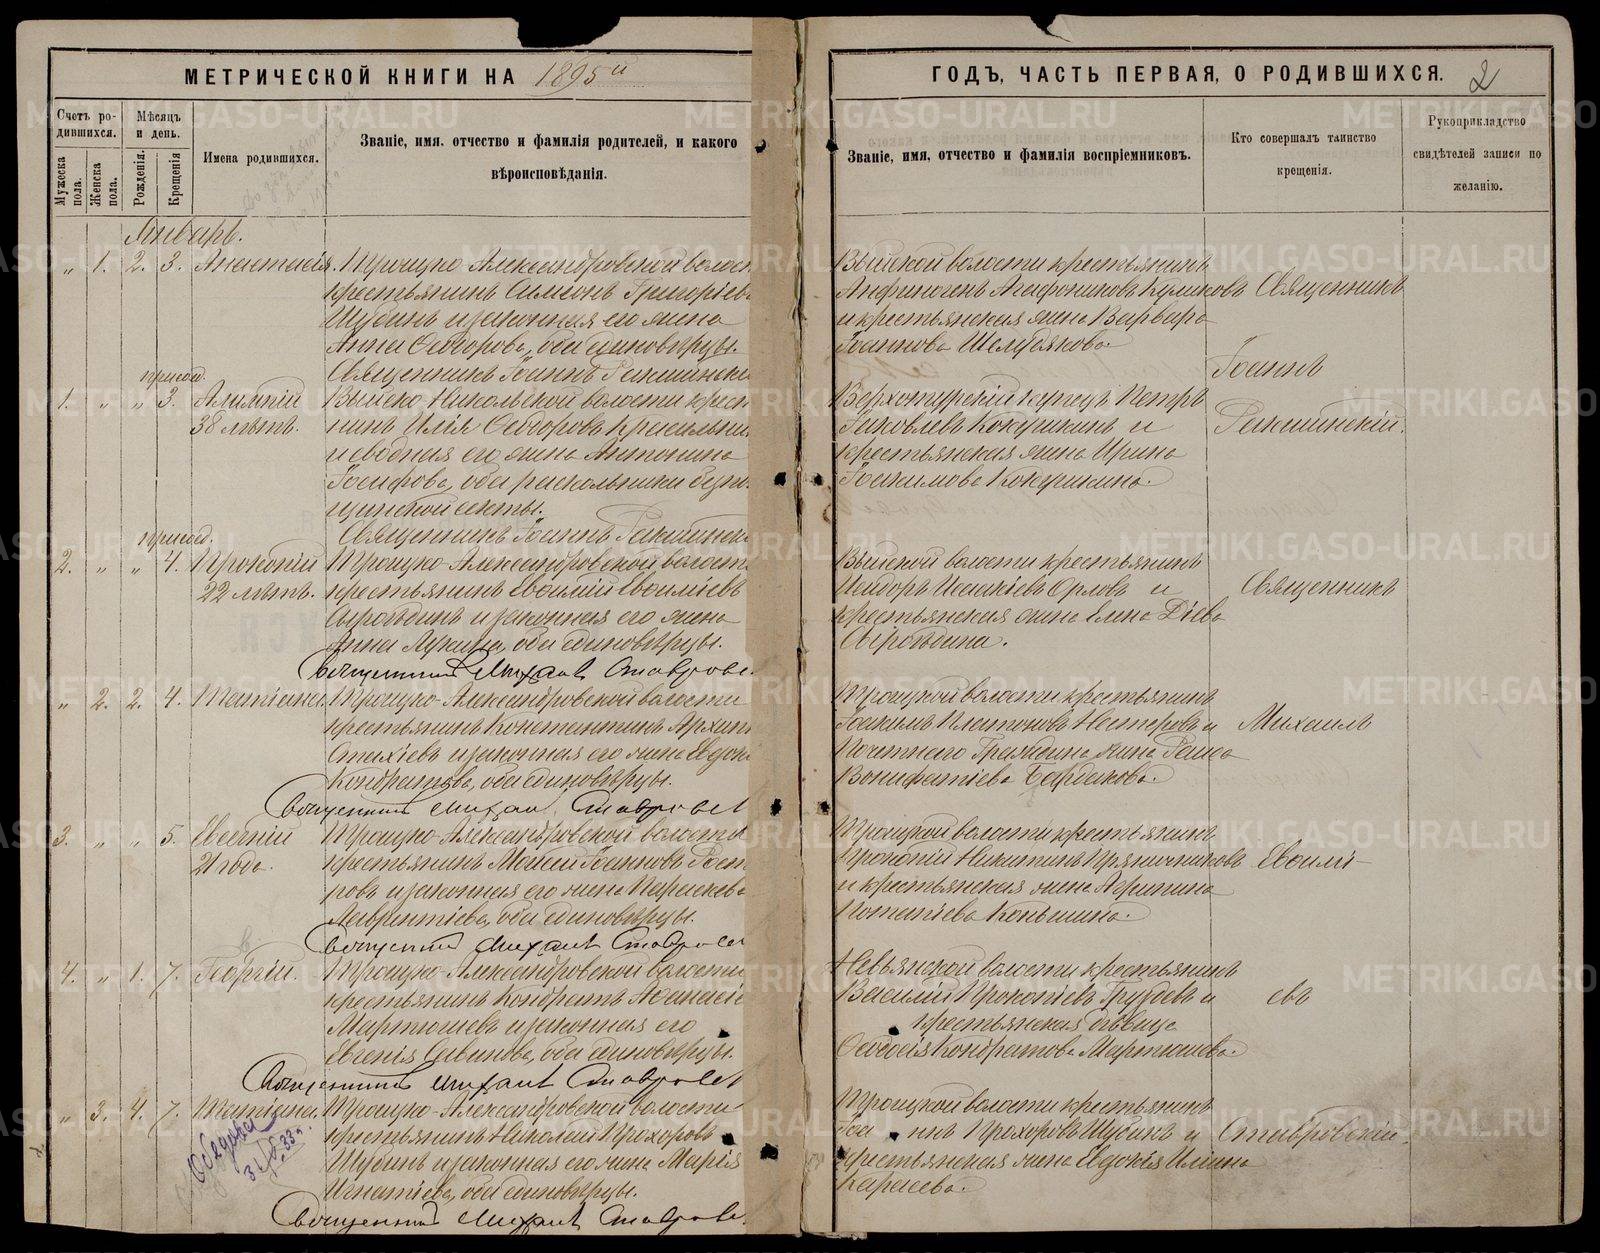 МЕТРИЧЕСКОЙ КНИГИ НА 1895й
ГОДЪ, ЧАСТЬ ПЕРВАЯ, О РОДИВШИХСЯ. 2
Счетъ ро-
дившихся.
Мужеска пола.
Женска пола.
Мѣсяцъ
и день.
Рожденія.
Крещенія
Имена родившихся.
Званіе, имя. отчество и фамилія родителей, и какого
вѣроисповѣданія.
Званіе, имя, отчество и фамилія воспріемниковъ.
Кто совершалъ таинство
крещенія.
Рукоприкладство
свидѣтелей записи по
желанію.
Январь.
" 1. 2. 3. Анастасія. Троицко Александровской волост
крестьянинъ Симеонъ Григоріевъ
Шубинъ и законная его жена
Анна Ѳеодорова, оба единовѣрцы.
Священникъ Іоаннъ
Выйской волости крестьянинъ
Анфиногенъ Агафониковъ Куликовъ
и крестьянская жена Варвара
Іоаннова Шелудякова.
Священникъ
Іоаннъ
присоед.
1. " " 3. Алимпій
38 лѣтъ.
Выйско Никольской волости крест
нинъ Илія Ѳеодоровъ
и сводная его жена Антонина
Іосифова, оба раскольники
секты.
Священникъ Іоаннъ
Верхотурскій купецъ Петръ
Іаковлевъ Кокушкинъ и
крестьянская жена Ирина
Іоакимова Кокушкина.
присоед.
2. " " 4. Прокопій
22 лѣтъ.
Троицко-Александровской волост
крестьянинъ Евѳимій Евѳиміевъ
Сыропѣтинъ и законная его жена
Анна Лукина, оба единовѣрцы.
Священникъ Михаил Ставровс
Выйской волости крестьянинъ
Исидоръ Исаакіевъ Орловъ и
крестьянская жена Елена
Священникъ
" 2. 2. 4. Татіана. Троицко-Александровской волости
крестьянинъ Константинъ Архип
Стахіевъ и законная его жена Евдок
Кондратова, оба единовѣрцы.
Священникъ Михаил Ставровск
Троицкой волости крестьянинъ
Іоакимъ Платоновъ Нестеровъ и
Почетнаго Гражданина жена Раиса
Вонифатіева Бардакова.
Михаилъ
3. " " 5. Евгеній
21 года.
Троицко-Александровской волости
крестьянинъ Моисей Іоанновъ
ровъ и законная его жена Параскева
Лаврентіева, оба единовѣрцы.
Священникъ Михаил Ставровск
Троицкой волости крестьянинъ
Прокопій Никитинъ Пряничниковъ
и крестьянская жена Агрипина
Потапіева Коньшина.
Евѳимі-
4. " 1. 7. Георгій. Троицко-Александровской волости
крестьянинъ Кондратъ Аѳанасіе
Мартюшевъ и законная его
Евгенія Савинова, оба единовѣрцы.
Священникъ Михаил Ставровск
Невьянской волости крестьянинъ
Василій Прокопіевъ Груздевъ и
крестьянская дѣвица
Ѳеодосія Кондратова Мартюшева.
евъ
" 3. 4. 7. Татіана. Троицко-Александровской волости
крестьянинъ Николай Прохоровъ
Шубинъ и законная его жена Марія
Игнатіева, оба единовѣрцы.
Священникъ Михаил Ставровс
Троицкой волости крестьянинъ
Прохоровъ Шубинъ и
крестьянская жена Евдокія Ильина
Караева.
Ставровскій.
METRIKI.GASO-URAL.RU